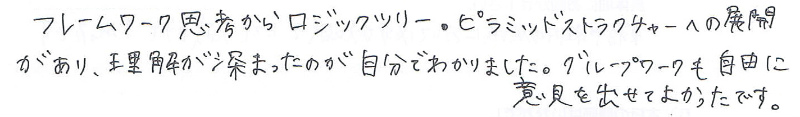 フレームワーク思考からロジックツリー。ピラミッドストラクチャーへの展開
があり、理解が深まったのが自分でわかりました。グループワークも自由に
意見を出せてよかったです。